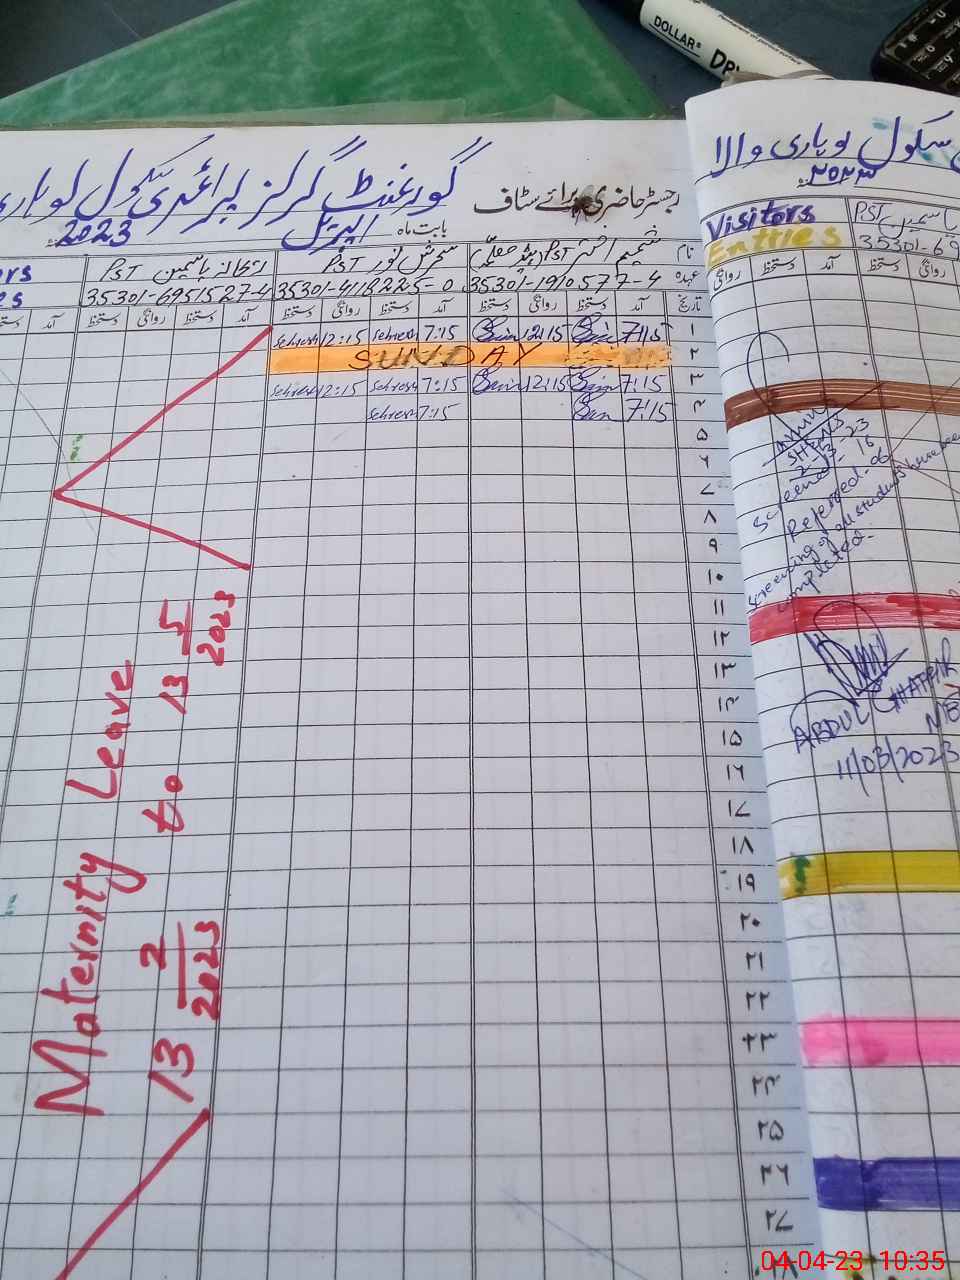 DOLLAR®
رجسٹر حاضری برائے سٹاف
گورنمنٹ گرلز پرائمری سکول لوہاری
بابت ماہ اپریل 2023
نام
عہدہ
شمیم اختر PST
سحرش نور PST
ریحانہ یاسمین PST
35301-1910577-4
35301-4118225-0
35301-6951527-4
تاریخ آمد دستخط روانگی دستخط آمد دستخط روانگی دستخط آمد دستخط روانگی دستخط آمد
۱ 7:15 12:15 7:15 Sehresh 12:15 Sehresh
۲ SUNDAY
۳ 7:15 12:15 7:15 Sehresh 12:15 Sehresh
۴ 7:15 7:15 Sehresh
۵
۶
۷
۸
۹
۱۰
۱۱
۱۲
۱۳
۱۴
۱۵
۱۶
۱۷
۱۸
۱۹
۲۰
۲۱
۲۲
۲۳
۲۴
۲۵
۲۶
۲۷
Maternity Leave
13 2/2023 to 13 5/2023
سکول لوہاری والا
۲۰۲۳
Visitors
Entries
یاسمین PST
35301-69
روانگی دستخط آمد دستخط روانگی
SHENS
Screened - 16
Referred - 06
Screening of all students have been
completed.
ABDUL GHAFFAR
11/03/2023
04-04-23 10:35